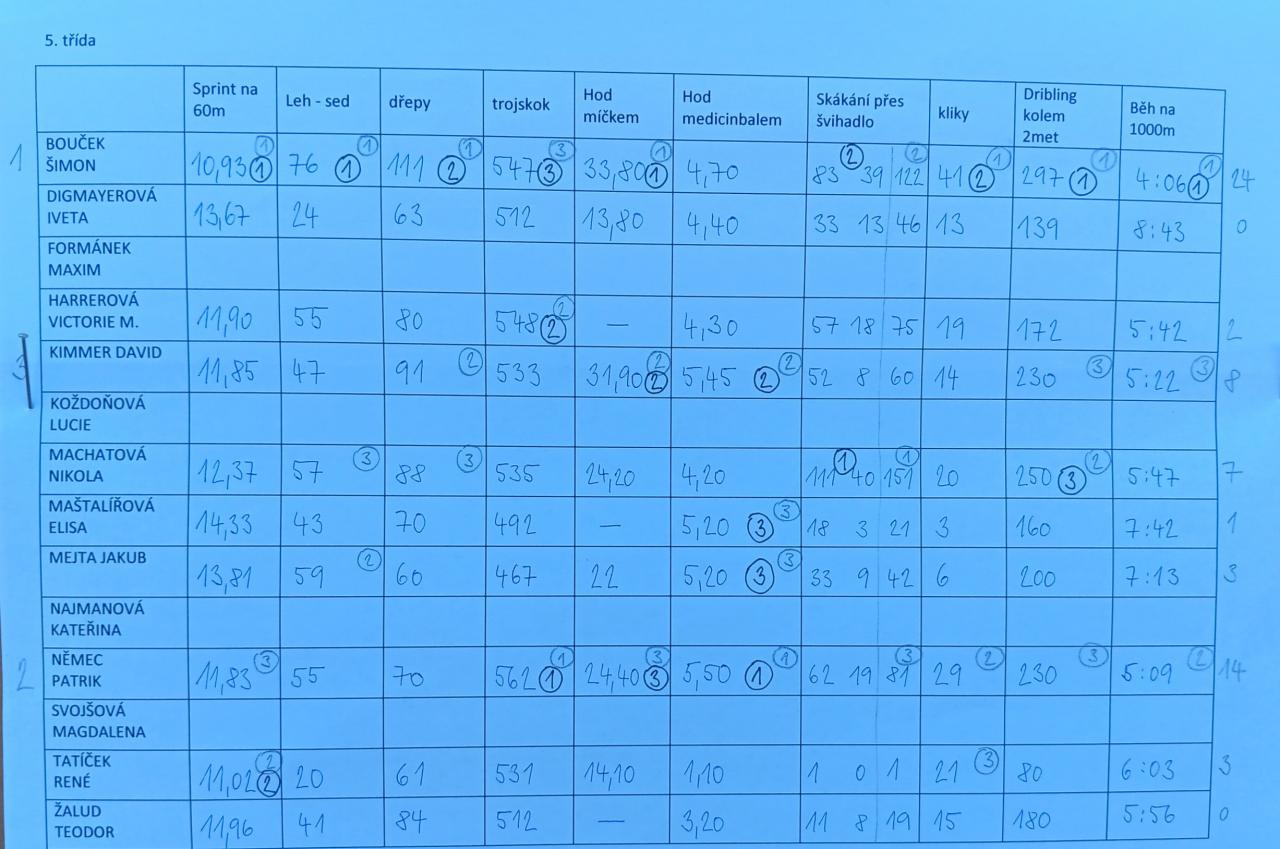 5. třída
Sprint na 60m Leh - sed dřepy trojskok Hod míčkem Hod medicinbalem Skákání přes švihadlo kliky Dribling kolem 2met Běh na 1000m
1 BOUČEK ŠIMON 10,93 1 1 76 1 1 111 2 1 547 3 3 33,80 1 1 4,70 83 2 39 122 2 41 2 1 297 1 1 4:06 1 1 24
DIGMAYEROVÁ IVETA 13,67 24 63 512 13,80 4,40 33 13 46 13 139 8:43 0
FORMÁNEK MAXIM
HARREROVÁ VICTORIE M. 11,90 55 80 548 2 2 — 4,30 57 18 75 19 172 5:42 2
3 KIMMER DAVID 11,85 47 91 2 533 31,90 2 2 5,45 2 2 52 8 60 14 230 3 5:22 3 8
KOŽDOŇOVÁ LUCIE
MACHATOVÁ NIKOLA 12,37 57 3 88 3 535 24,20 4,20 111 1 40 151 1 20 250 3 2 5:47 7
MAŠTALÍŘOVÁ ELISA 14,33 43 70 492 — 5,20 3 3 18 3 21 3 160 7:42 1
MEJTA JAKUB 13,81 59 2 60 467 22 5,20 3 3 33 9 42 6 200 7:13 3
NAJMANOVÁ KATEŘINA
2 NĚMEC PATRIK 11,83 3 55 70 562 1 1 24,40 3 3 5,50 1 1 62 19 81 3 29 2 230 3 5:09 2 14
SVOJŠOVÁ MAGDALENA
TATÍČEK RENÉ 11,02 2 2 20 61 531 14,10 1,10 1 0 1 21 3 80 6:03 3
ŽALUD TEODOR 11,96 41 84 512 — 3,20 11 8 19 15 180 5:56 0